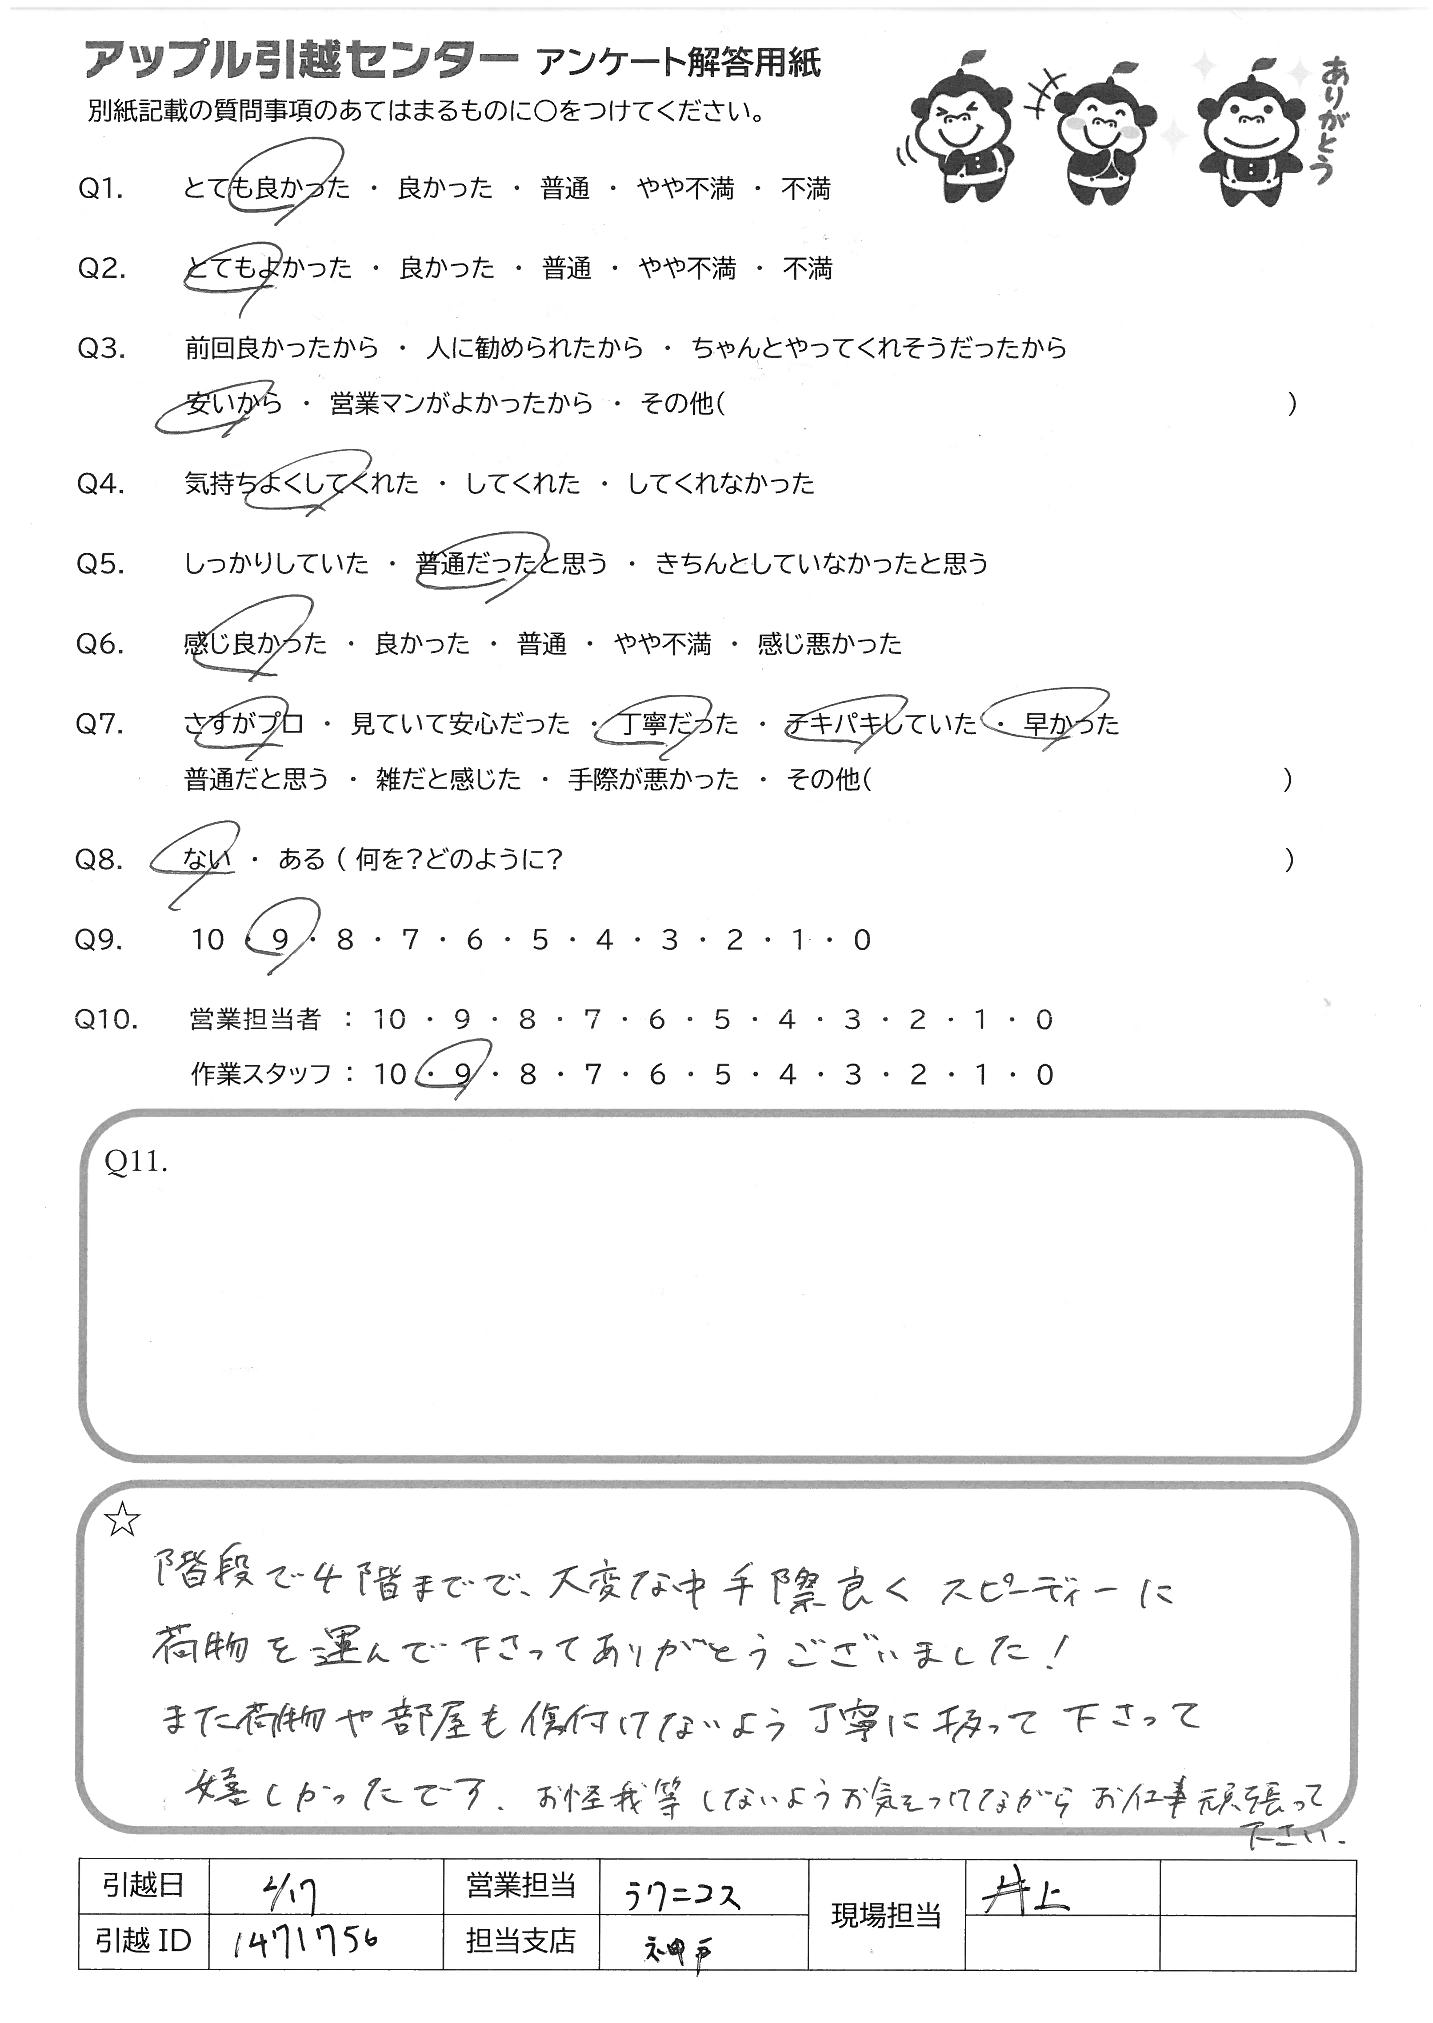 アップル引越センター アンケート解答用紙
別紙記載の質問事項のあてはまるものに〇をつけてください。
ありがとう
Q1. とても良かった ・ 良かった ・ 普通 ・ やや不満 ・ 不満
Q2. とてもよかった ・ 良かった ・ 普通 ・ やや不満 ・ 不満
Q3. 前回良かったから ・ 人に勧められたから ・ ちゃんとやってくれそうだったから
安いから ・ 営業マンがよかったから ・ その他( )
Q4. 気持ちよくしてくれた ・ してくれた ・ してくれなかった
Q5. しっかりしていた ・ 普通だったと思う ・ きちんとしていなかったと思う
Q6. 感じ良かった ・ 良かった ・ 普通 ・ やや不満 ・ 感じ悪かった
Q7. さすがプロ ・ 見ていて安心だった ・ 丁寧だった ・ テキパキしていた ・ 早かった
普通だと思う ・ 雑だと感じた ・ 手際が悪かった ・ その他( )
Q8. ない ・ ある ( 何を?どのように? )
Q9. 10 ・ 9 ・ 8 ・ 7 ・ 6 ・ 5 ・ 4 ・ 3 ・ 2 ・ 1 ・ 0
Q10. 営業担当者 : 10 ・ 9 ・ 8 ・ 7 ・ 6 ・ 5 ・ 4 ・ 3 ・ 2 ・ 1 ・ 0
作業スタッフ : 10 ・ 9 ・ 8 ・ 7 ・ 6 ・ 5 ・ 4 ・ 3 ・ 2 ・ 1 ・ 0
Q11.
☆
階段で4階までで、大変な中手際良くスピーディーに
荷物を運んで下さってありがとうございました!
また荷物や部屋も傷付けないよう丁寧に扱って下さって
嬉しかったです。お怪我等しないようお気をつけてながらお仕事頑張って
下さい.
引越日 2/17 営業担当 うワニコス 現場担当 井上
引越ID 1471756 担当支店 神戸